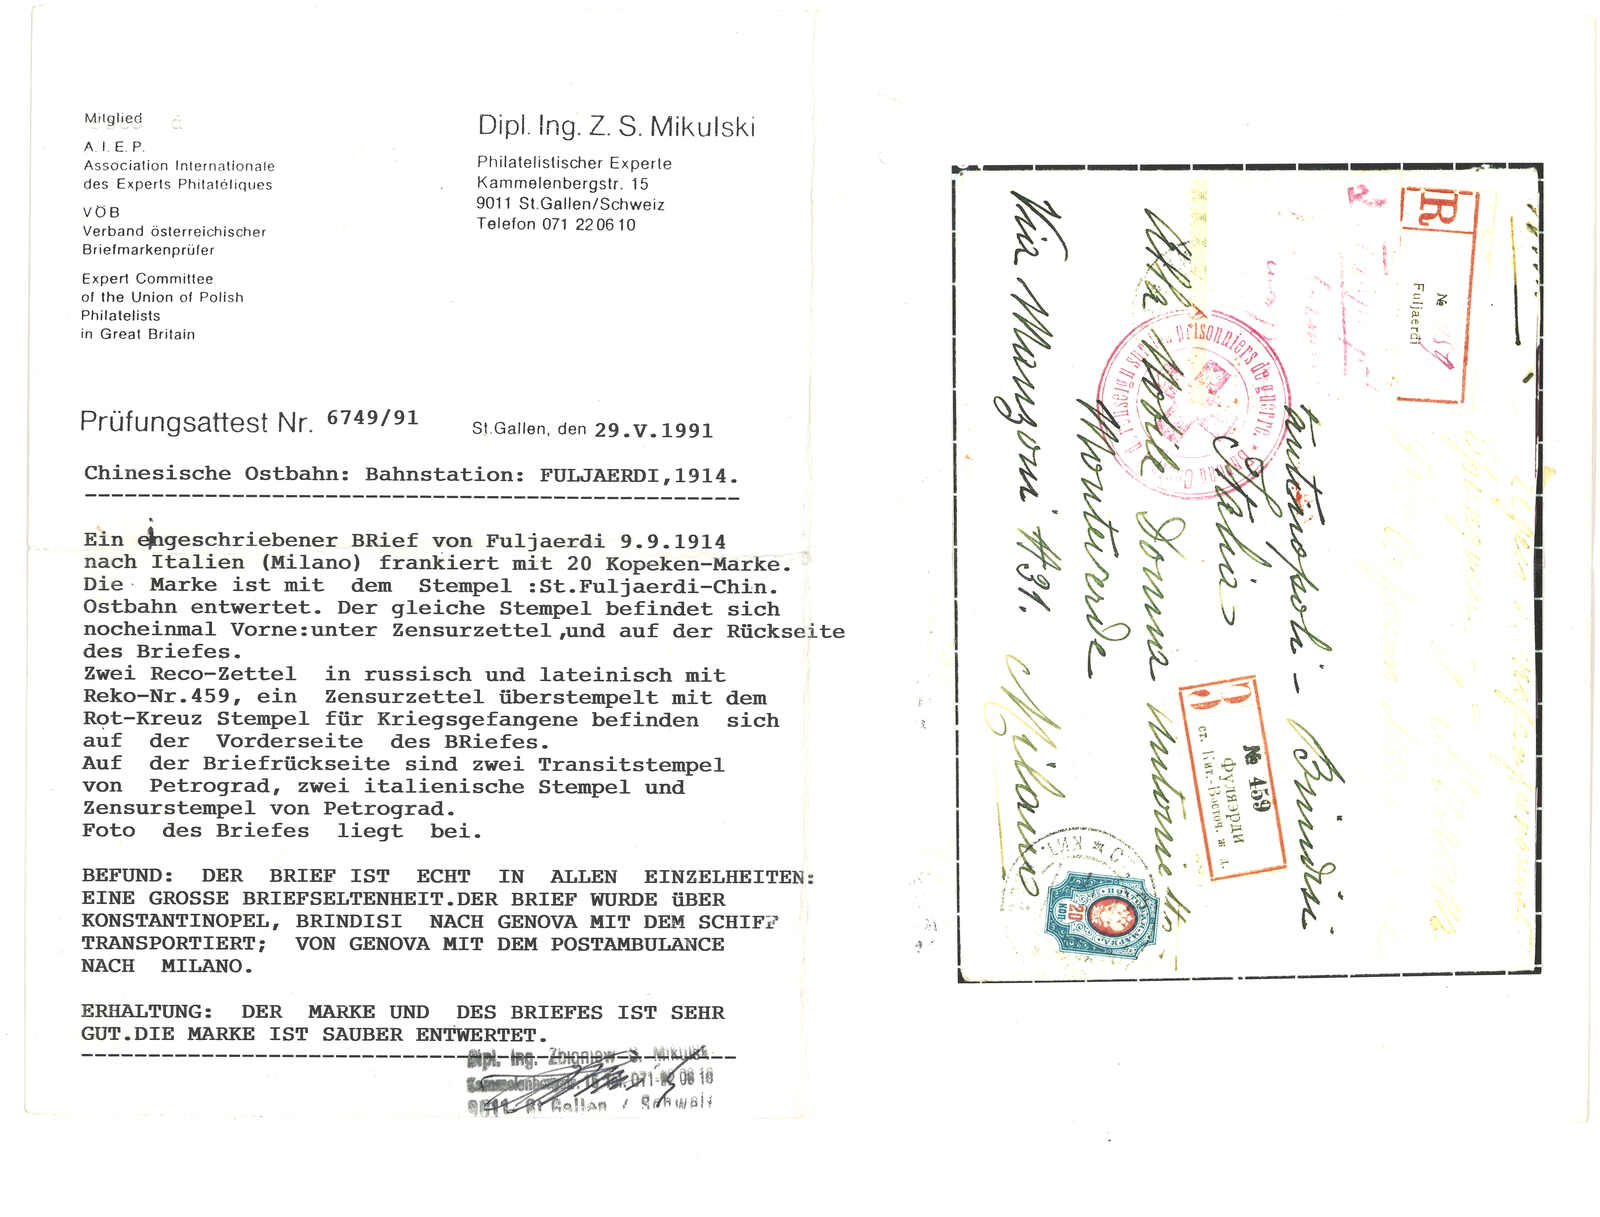 Mitglied
A.I.E.P.
Association Internationale
des Experts Philatéliques
VÖB
Verband österreichischer
Briefmarkenprüfer
Expert Committee
of the Union of Polish
Philatelists
in Great Britain
Dipl. Ing. Z. S. Mikulski
Philatelistischer Experte
Kammelenbergstr. 15
9011 St.Gallen/Schweiz
Telefon 071 220610
Prüfungsattest Nr. 6749/91
St.Gallen, den 29.V.1991
Chinesische Ostbahn: Bahnstation: FULJAERDI,1914.
Ein eingeschriebener BRief von Fuljaerdi 9.9.1914
nach Italien (Milano) frankiert mit 20 Kopeken-Marke.
Die Marke ist mit dem Stempel :St.Fuljaerdi-Chin.
Ostbahn entwertet. Der gleiche Stempel befindet sich
nocheinmal Vorne:unter Zensurzettel,und auf der Rückseite
des Briefes.
Zwei Reco-Zettel in russisch und lateinisch mit
Reko-Nr.459, ein Zensurzettel überstempelt mit dem
Rot-Kreuz Stempel für Kriegsgefangene befinden sich
auf der Vorderseite des BRiefes.
Auf der Briefrückseite sind zwei Transitstempel
von Petrograd, zwei italienische Stempel und
Zensurstempel von Petrograd.
Foto des Briefes liegt bei.
BEFUND: DER BRIEF IST ECHT IN ALLEN EINZELHEITEN:
EINE GROSSE BRIEFSELTENHEIT.DER BRIEF WURDE üBER
KONSTANTINOPEL, BRINDISI NACH GENOVA MIT DEM SCHIFF
TRANSPORTIERT; VON GENOVA MIT DEM POSTAMBULANCE
NACH MILANO.
ERHALTUNG: DER MARKE UND DES BRIEFES IST SEHR
GUT.DIE MARKE IST SAUBER ENTWERTET.
Dipl. Ing. Zbigniew S. Mikulski
Kammelenbergstr. 15 Tel. 071-22 06 10
9011 St.Gallen / Schweiz
R
№ 459
Fuljaerdi
prisonniers de guerre.
Constantinopoli - Brindisi
Italia
Alla Nobile Donna
Monteverde
Via Manzoni # 31.
Milano
З
№ 459
Фулязрди
ст. Кит.-Восточ. ж. д.
20
КОП